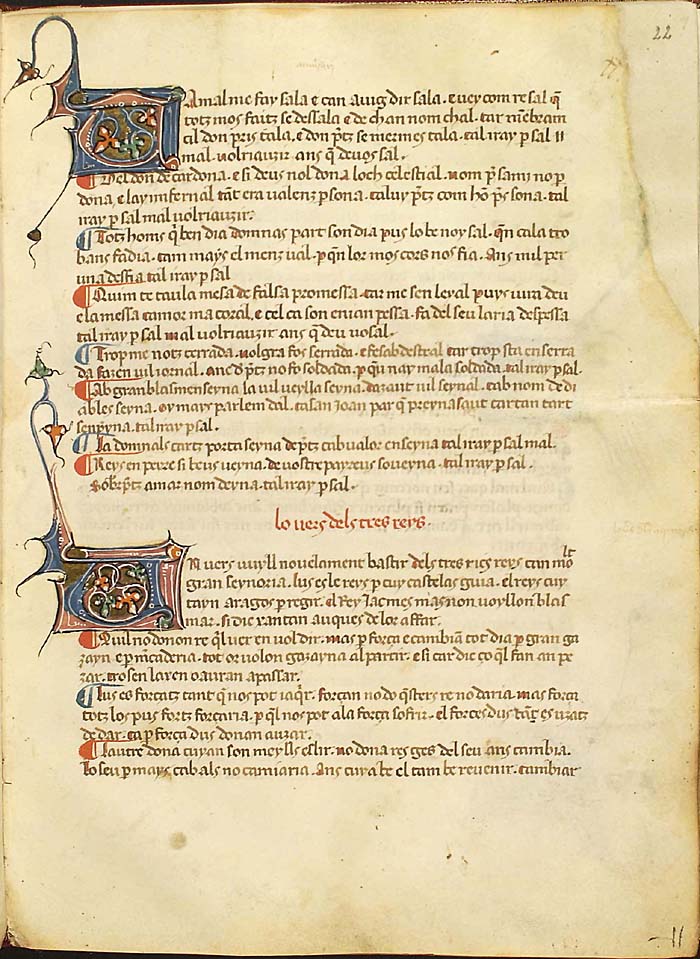 22
Amal me fay sala e can auig dir sala. e uey com re sal q̄
totz mos faitz se dessala e de chan nom chal. car
cil don pris tala. e don p̄tz se mermes tala. tal iray p sal
mal. uolriauzir. ans q̄ deuos sal.
Del don de cardona. e si deus nol dona loch celestial. nom p̄ sami no p
dona. e lay infernal tāt era ualenz psona. caluy p̄tz com hō p̄s sona. tal
iray p sal mal uolriauzir.
Totz homs q̄ ben dia domnas part son dia pus lobe noy sal. q̄n cala tro
bans fadia. cam mays el menz ual. p q̄n lor mos cors nos fia. Ans mil per
una desfia. tal iray p sal
Quim te taula mesa de falsa promessa. car me sen leyal puys iura deu
e la messa camor ma coral. e tel ca son enian pessa. fa del seu laria despessa
tal iray p sal mal uolriauzir ans q̄ deu uo sal.
Trop me notz cerrada. uolgra fos serrada. e fes ab destral car trop sta en serra
da fazen uil iornal. anc d̄ p̄tz no fo soldada. p qu nay mala soldada. tal iray p sal.
Ab gran blasmen seyna. la uil ueylla seyna. dauaut uil seynal. cab nom de di
ables seyna. oy mays parlem dal. ca san Ioan par q̄ preyna saut cartan tart
sen pyna. tal iray p sal.
La domnals cartz porta seyna de p̄tz cab ualor enseyna tal iray p sal mal.
Reys en peyre si beus ueyna. de uostre payreus soueyna. tal iray p sal.
Sobr p̄tz amar nom deyna. tal iray p sal.
lo uers dels tres reys.
Un uers uuyll nouelament bastir dels tres rics reys can mō
gran seynoria. lus es le reys p cuy castelas guia. el reys cuy
tayn aragos p regir. el Rey Iacmes mas non uoyll on blas
mar. si dic xantan auques de lor affar.
Quil no donon re q̄l uer en uol dir. mas p força e cambian tot dia p gran ga
zayn e p mcaderia. tot or uolon gazayna al partir. e si car dic ço q̄l fan an pe
zar. tro sen laxen o auran a passar.
Lus es forcatz tant q̄ nos pot iaq̄r. forçan no do q̄sters re no daria. mas força
totz los pus fortz forçaria. p q̄l nos pot a la força sofrir. el forces dus tāt es uzatz
de dar. ca p força dus donan auzar.
Lautre dona cuyan son meylls eslir. no dona res ges del seu ans cambia.
lo seu p mays cab als no camiaria. Ans cuya be el cam be reuenir. cambiar